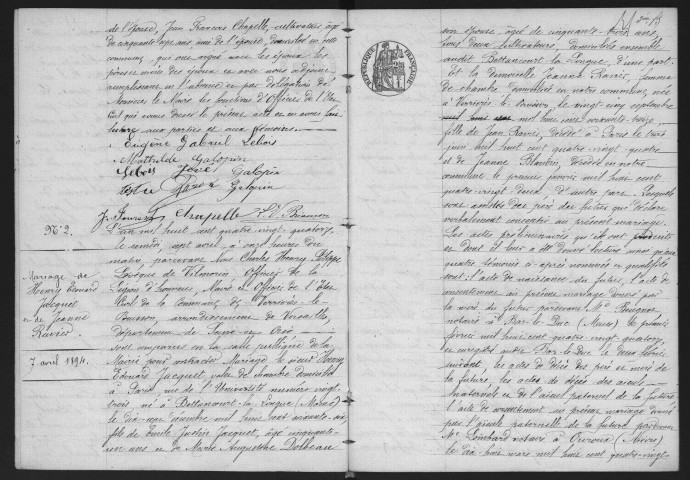 de l'épouse, Jean François Chapelle, cultivateur, âgé
de cinquante sept ans, ami de l'épouse, domicilié en cette
commune, qui ont signé avec les époux, les
pères et mère des époux et avec nous adjoint,
remplissant en l'absence et par délégation de
Monsieur le Maire, les fonctions d'Officier de l'État
Civil qui avons dressé le présent acte et en avons fait
lecture aux parties et aux témoins.
Eugène Gabriel Lebois
Mathilde Galopin
Lebois Galopin
Galopin
Chapelle
N° 2.
Mariage de
Henry Édouard
Jacquet
et de Jeanne
7 avril 1894.
L'an mil huit cent quatre vingt quatorze,
le samedi, sept avril à onze heures du
matin, pardevant Nous Charles Henry Philippe
Lévêque de Vilmorin Officier de la
Légion d'honneur, Maire et Officier de l'État
Civil de la Commune de Verrières-le-
Buisson, arrondissement de Versailles,
Département de Seine-et-Oise
sont comparus en la salle publique de la
Mairie pour contracter Mariage le sieur Henry
Édouard Jacquet, valet de chambre domicilié
à Paris rue de l'Université numéro vingt
trois né à Bettancourt-la-Longue (Marne)
le dix-sept décembre mil huit cent soixante six
fils de Émile Justin Jacquet, âgé cinquante
un ans et de Marie Augustine
RÉPUBLIQUE FRANÇAISE
son épouse, âgée de cinquante trois ans,
tous deux cultivateurs, domiciliés ensemble
audit Bettancourt la Longue, d'une part.
Et la demoiselle Jeanne femme
de chambre demeurant en notre commune, née
à Verrières le Buisson, le vingt cinq septembre
mil huit cent soixante treize,
fille de Jean décédé à Paris le trois
juin mil huit cent quatre-vingt-quatre
et de Jeanne décédée en notre
commune le premier février mil huit cent
quatre-vingt douze d'autre part. Lesquels
sont assistés des père du futur qui déclare
verbalement consentir au présent mariage.
Les actes préliminaires qui ont été
et dont il leur a été donné lecture ainsi qu'aux
quatre témoins ci-après nommés et qualifiés
sont: l'acte de naissance du futur, l'acte de
consentement au présent mariage donné par
la mère du futur pardevant Me
notaire à Bar-le-Duc (Meuse) le
février mil huit cent quatre-vingt quatorze,
et enregistré audit Bar-le-Duc le deux février
suivant, les actes de décès des père et mère de
la future, les actes de décès des aïeuls
maternels et de l'aïeul paternel de la future
l'acte de consentement au présent mariage donné
par l'aïeule paternelle de la future pardevant
Me Lombard notaire à Ouroux (Nièvre)
le dix huit mars mil huit cent quatre-vingt